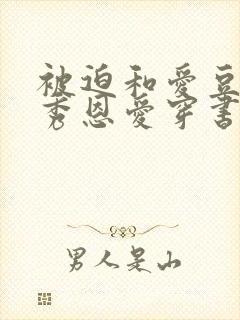 被迫和爱豆
秀恩爱穿书
男人是山